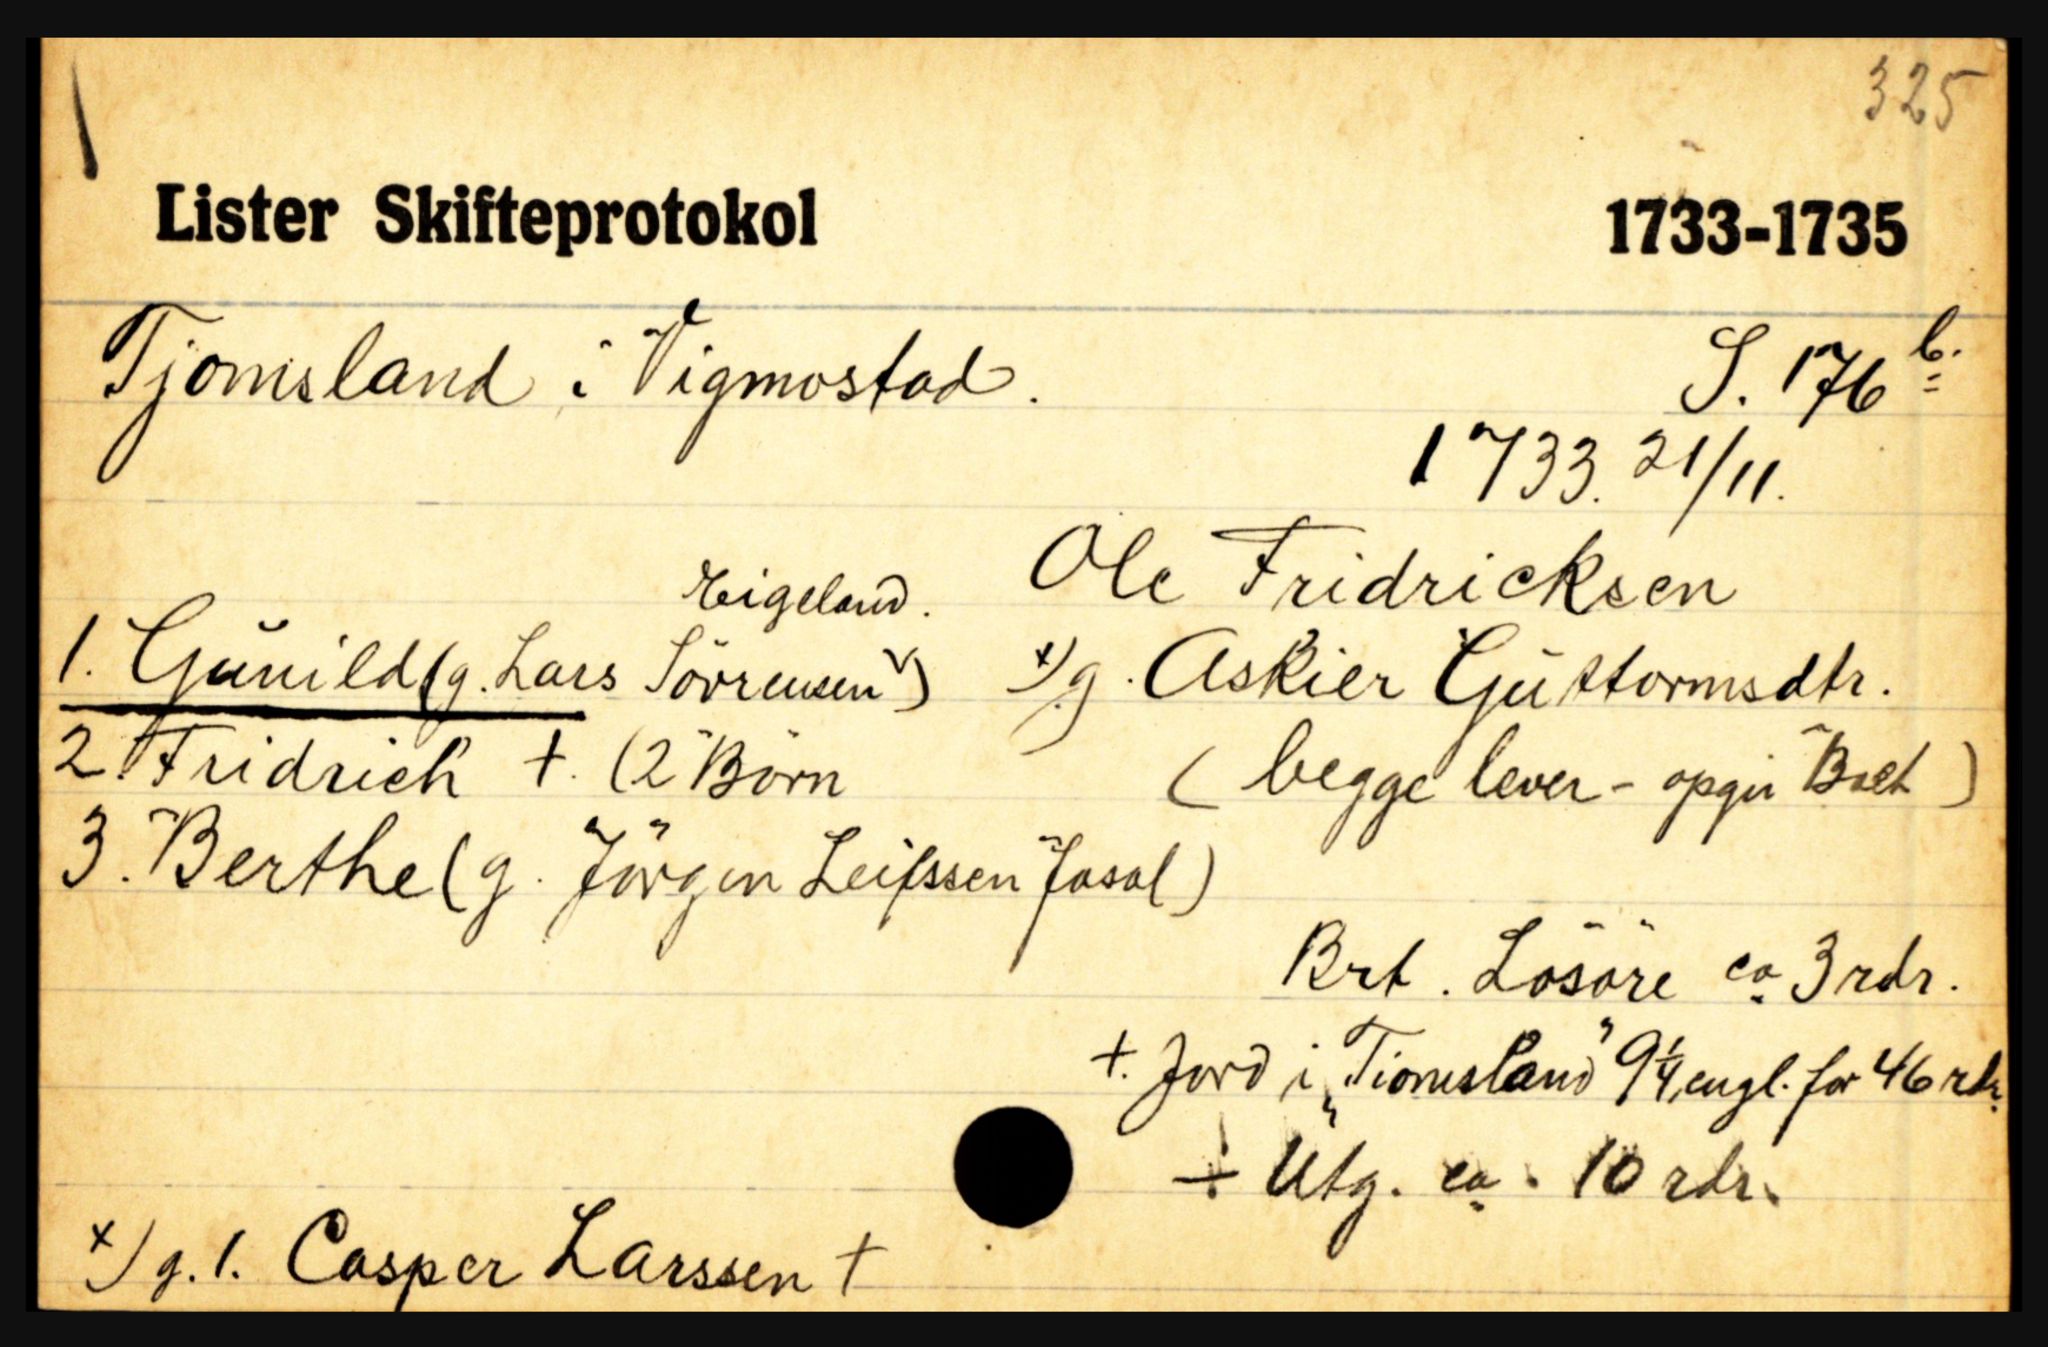 325
Lister Skifteprotokol 1733-1735
Tjomsland i Vigmostad. S. 176 b.
1733. 21/11.
Ole Fridricksen
Eigeland.
1. Gŭnild (g. Lars Sörrensen) x/g. Askier Gŭttormsdtr.
2. Fridrich †. (2 Börn (begge lever - opgir Boet)
3. Berthe (g. Jörgen Leifssen Jasal)
Brt. Lösöre ca 3 rdr.
+. Jord i "Tiomsland" 9 1/4 engl. for 46 rdr.
÷ Utg. ca. 10 rdr.
x/ g. 1. Casper Larssen †